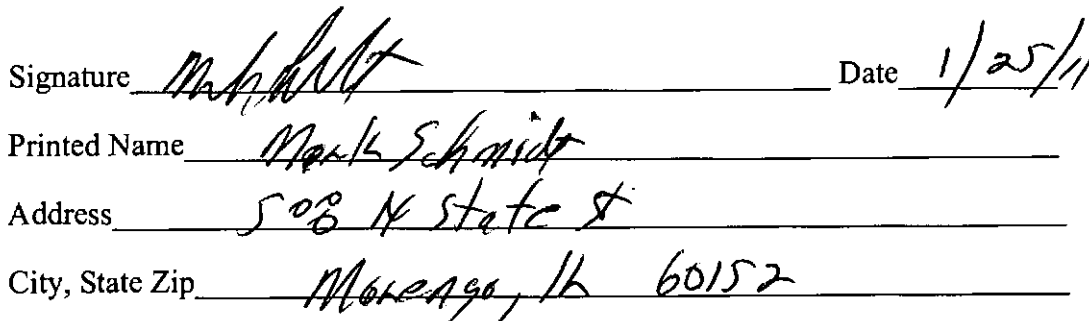 Signature Date 1/25/11
Printed Name Mark Schmidt
Address 508 N State St
City, State Zip Marengo, IL 60152